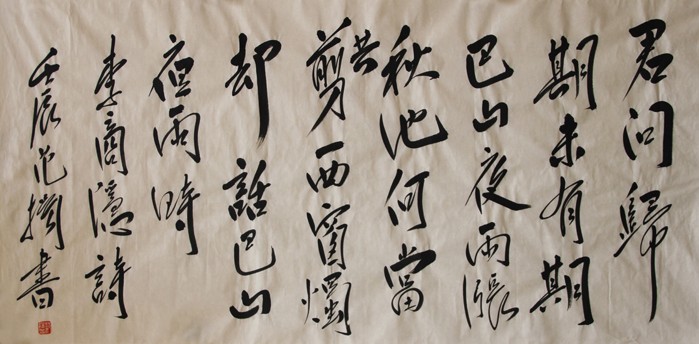 君问歸
期未有期
巴山夜雨漲
秋池何當
共剪西窗燭
却話巴山
夜雨時
李商隱詩
壬辰范书